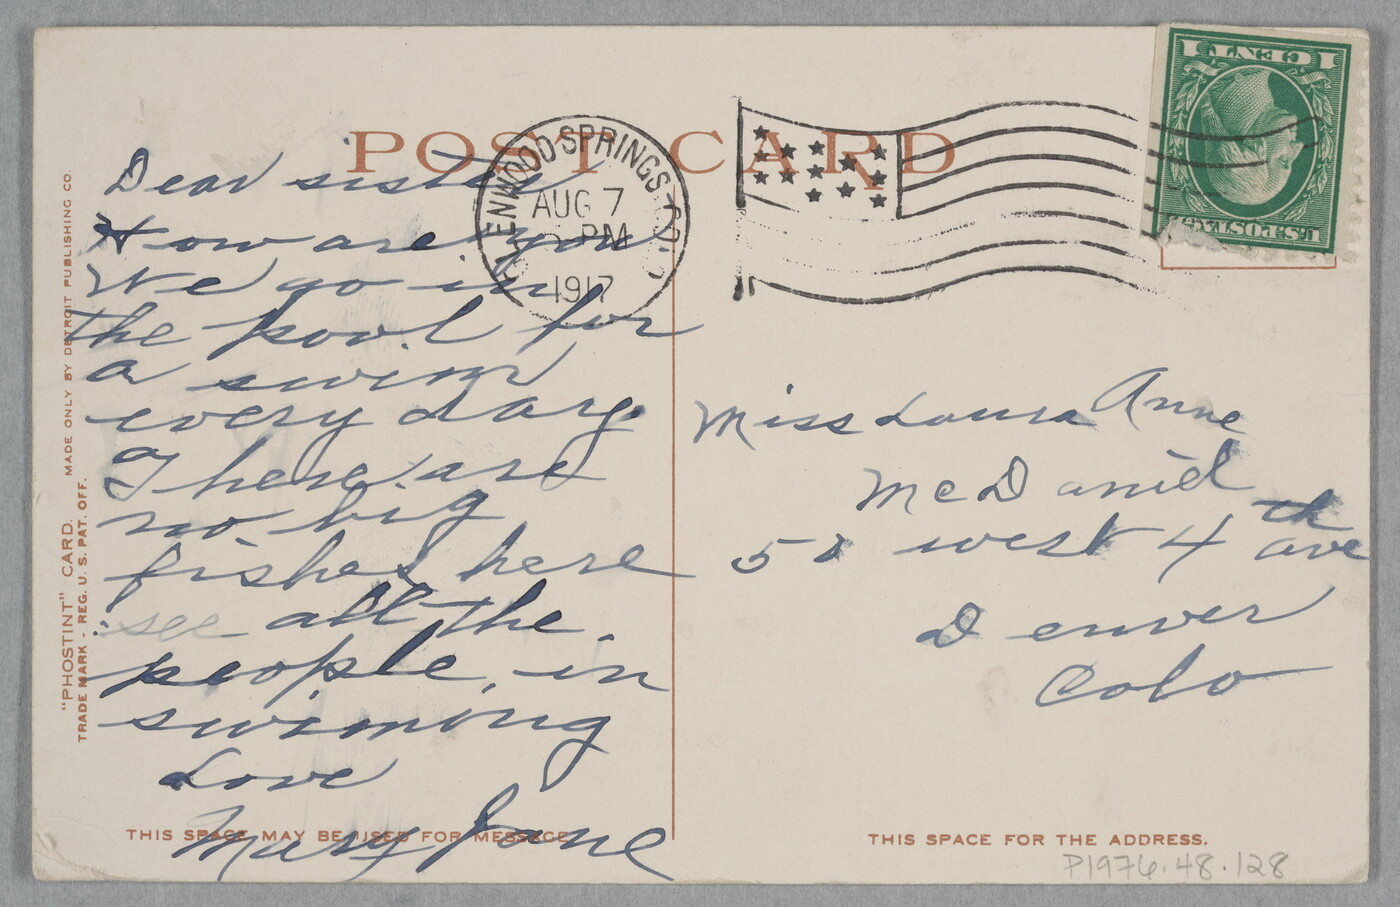 POST CARD
GLENWOOD SPRINGS COLO.
AUG 7
PM
1917
1 CENT 1
U.S. POSTAGE
"PHOSTINT" CARD. MADE ONLY BY DETROIT PUBLISHING CO.
TRADE MARK - REG. U. S. PAT. OFF.
Dear sister
How are you
We go in
the pool for
a swim
every day.
There are
no big
fishes here
see all the
people in
swiming
Love
Mary Jane
THIS SPACE MAY BE USED FOR MESSAGE
Miss Laura Anne
McDaniel
west 4th ave
Denver
Colo
THIS SPACE FOR THE ADDRESS.
P1976.48.128